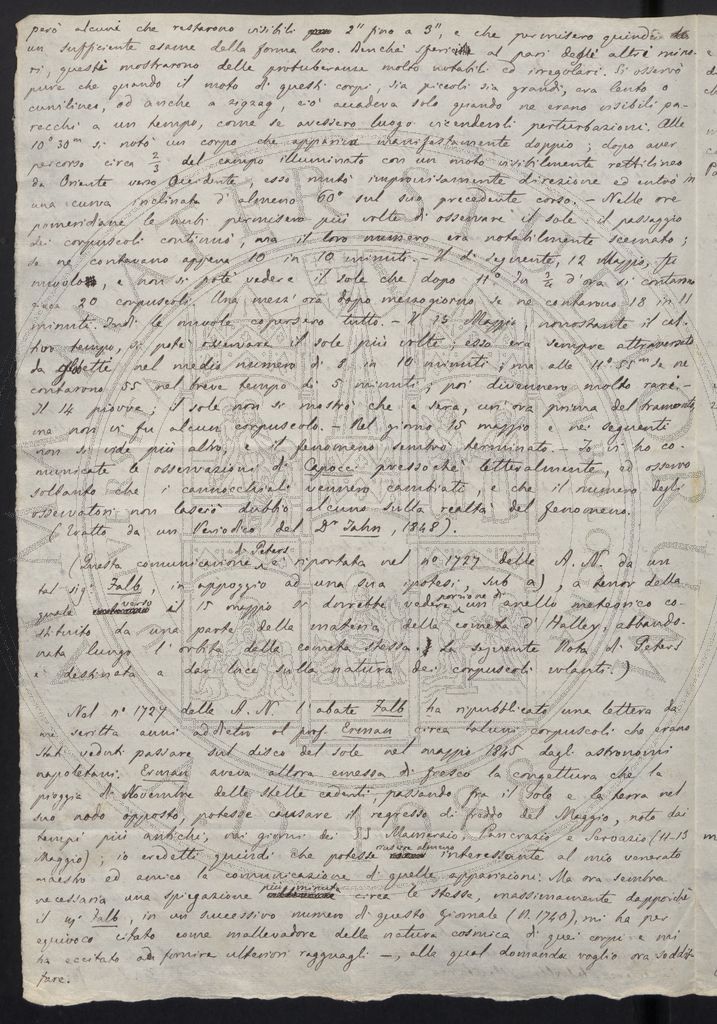 però alcuni che restarono visibili 2" fino a 3", e che permisero quindi
un sufficiente esame della forma loro. Benchè sferici al pari degli altri mino-
ri, questi mostrarono delle protuberanze molto notabili ed irregolari. Si osservò
pure che quando il moto di questi corpi, sia piccoli sia grandi, era lento o
curvilineo, od anche a zigzag, ciò accadeva solo quando ne erano visibili pa-
recchi a un tempo, come se avessero luogo vicendevoli perturbazioni. Alle
10° 30m si notò un corpo che appariva manifestamente doppio; dopo aver
percorso circa 2/3 del campo illuminato con un moto visibilmente rettilineo
da Oriente verso Occidente, esso mutò improvvisamente direzione ed entrò in
una curva inclinata d'almeno 60° sul suo precedente corso. - Nelle ore
pomeridiane le nubi permisero più volte di osservare il sole: il passaggio
dei corpuscoli continuò, ma il loro numero era notabilmente scemato;
se ne contavano appena 10 in 10 minuti. - Il dì seguente, 12 Maggio, fu
nuvolo, e non si potè vedere il sole che dopo 11°. In 3/4 d'ora si contarono
20 corpuscoli. Una mezz'ora dopo mezzogiorno se ne contarono 18 in 11
minuti. Indi le nuvole copersero tutto. - Il 13 Maggio, nonostante il cat-
tivo tempo, si potè osservare il sole più volte; esso era sempre attraversato
da nel medio numero di 8 in 10 minuti; ma alle 11° 55m se ne
contarono 55 nel breve tempo di 5 minuti; poi divennero molto rari. -
Il 14 piovve; il sole non si mostrò che a sera, un'ora prima del tramonto,
ma non vi fu alcun corpuscolo. - Nel giorno 15 maggio e nei seguenti
non si vide più altro, e il fenomeno sembrò terminato. - Io vi ho co-
municate le osservazioni di Capocci pressochè letteralmente, ed osservo
soltanto che i cannocchiali vennero cambiati, e che il numero degli
osservatori non lasciò dubbio alcuno sulla realtà del fenomeno.
(Tratto da un Periodico del Dr Jahn, 1848).
(Questa comunicazione di Peters è riportata nel n° 1727 delle A. N. da un
tal sig. Falb, in appoggio ad una sua ipotesi, sub a), a tenor della
quale verso il 15 maggio si dovrebbe vedere porzione di un anello meteorico co-
stituito da una parte della materia della cometa d'Halley, abbando-
nata lungo l'orbita dalla cometa stessa. La seguente Nota di Peters
è destinata a dar luce sulla natura dei corpuscoli volanti.)
Nel n° 1727 delle A. N. l'abate Falb ha ripubblicato una lettera da
me scritta anni addietro al prof. Erman circa taluni corpuscoli che erano
stati veduti passare sul disco del sole nel maggio 1845 dagli astronomi
napoletani. Erman aveva allora emessa di fresco la congettura che la
pioggia di Novembre delle stelle cadenti, passando fra il Sole e la terra nel
suo nodo opposto, potesse causare il regresso di freddo del Maggio, noto dai
tempi più antichi, nei giorni dei SS Mamerzio, Pancrazio e Servazio (11-13
Maggio); io credetti quindi che potesse riuscire almeno interessante al mio venerato
maestro ed amico la comunicazione di quelle apparizioni. Ma ora sembra
necessaria una spiegazione più minuta circa le stesse, massimamente dappoichè
il sig. Falb, in un successivo numero di questo giornale (N. 1740), mi ha per
equivoco citato come mallevadore della natura cosmica di quei corpi e mi
ha eccitato a fornire ulteriori ragguagli -, alla qual domanda voglio ora soddis-
fare.